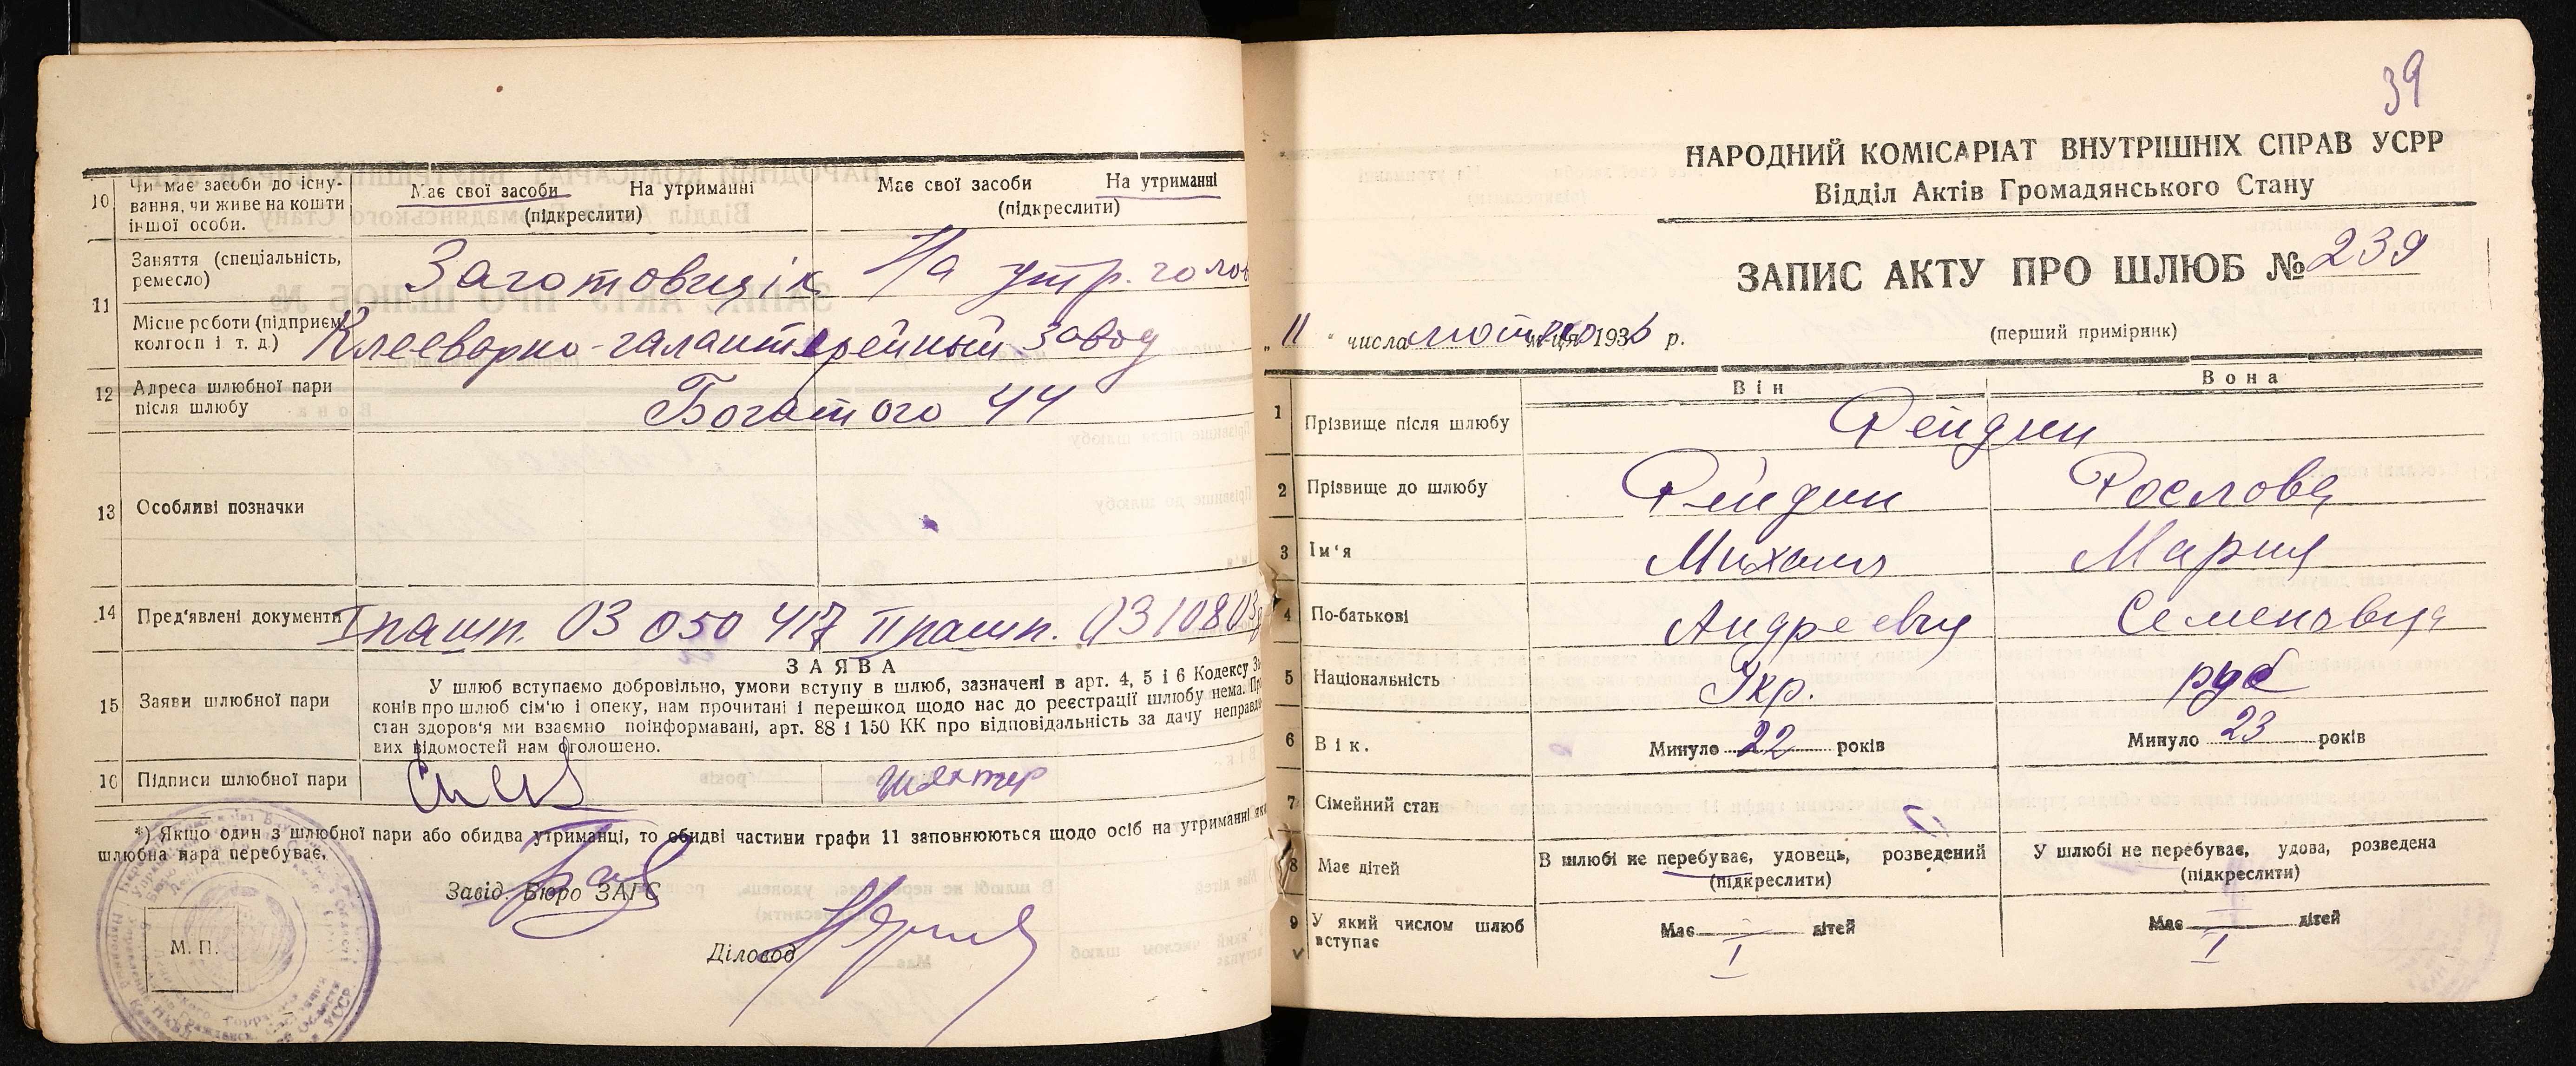 10 Чи має засоби до існу-
вання, чи живе на кошти
іншої особи.
Має свої засоби На утриманні
(підкреслити)
Має свої засоби На утриманні
(підкреслити)
11 Заняття (спеціальність,
ремесло)
Заготовщік На утр. голов
Місце роботи (підприєм
колгосп і т. д.)
Клееварно-галантерейный завод
12 Адреса шлюбної пари
після шлюбу
Богатого 44
13 Особливі позначки
14 Пред'явлені документи
I пашп. 03 050 417 II пашп. 0310803
15 Заяви шлюбної пари
ЗАЯВА
У шлюб вступаємо добровільно, умови вступу в шлюб, зазначені в арт. 4, 5 і 6 Кодексу За
конів про шлюб сім'ю і опеку, нам прочитані і перешкод щодо нас до реєстрації шлюбу нема. Пр
стан здоров'я ми взаємно поінформавані, арт. 88 і 150 КК про відповідальність за дачу неправд
вих відомостей нам оголошено.
16 Підписи шлюбної пари
*) Якщо один з шлюбної пари або обидва утриманці, то обидві частини графи 11 заповнюються щодо осіб на утриманні як
шлюбна пара перебуває.
Завід. Бюро ЗАГС
Діловод
М. П.
39
НАРОДНИЙ КОМІСАРІАТ ВНУТРІШНІХ СПРАВ УСРР
Відділ Актів Громадянського Стану
ЗАПИС АКТУ ПРО ШЛЮБ № 239
„ 11 " числа лютого м-ця 1936 р.
(перший примірник)
Він Вона
1 Прізвище після шлюбу Рейдин
2 Прізвище до шлюбу Рейдин Рослова
3 Ім'я Михаил Мария
4 По-батькові Андреевич Семеновна
5 Національність Укр. рус
6 Вік. Минуло 22 років Минуло 23 років
7 Сімейний стан
8 Має дітей
В шлюбі не перебуває, удовець, розведений
(підкреслити)
У шлюбі не перебуває, удова, розведена
(підкреслити)
9 У який числом шлюб
вступає
Має дітей Має дітей
I I